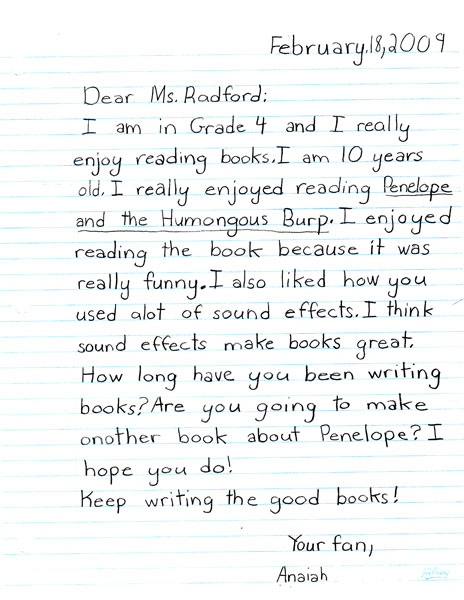 February.18,2009
Dear Ms. Radford:
I am in Grade 4 and I really
enjoy reading books. I am 10 years
old. I really enjoyed reading Penelope
and the Humongous Burp. I enjoyed
reading the book because it was
really funny. I also liked how you
used alot of sound effects. I think
sound effects make books great.
How long have you been writing
books? Are you going to make
onother book about Penelope? I
hope you do!
Keep writing the good books!
Your fan,
Anaiah